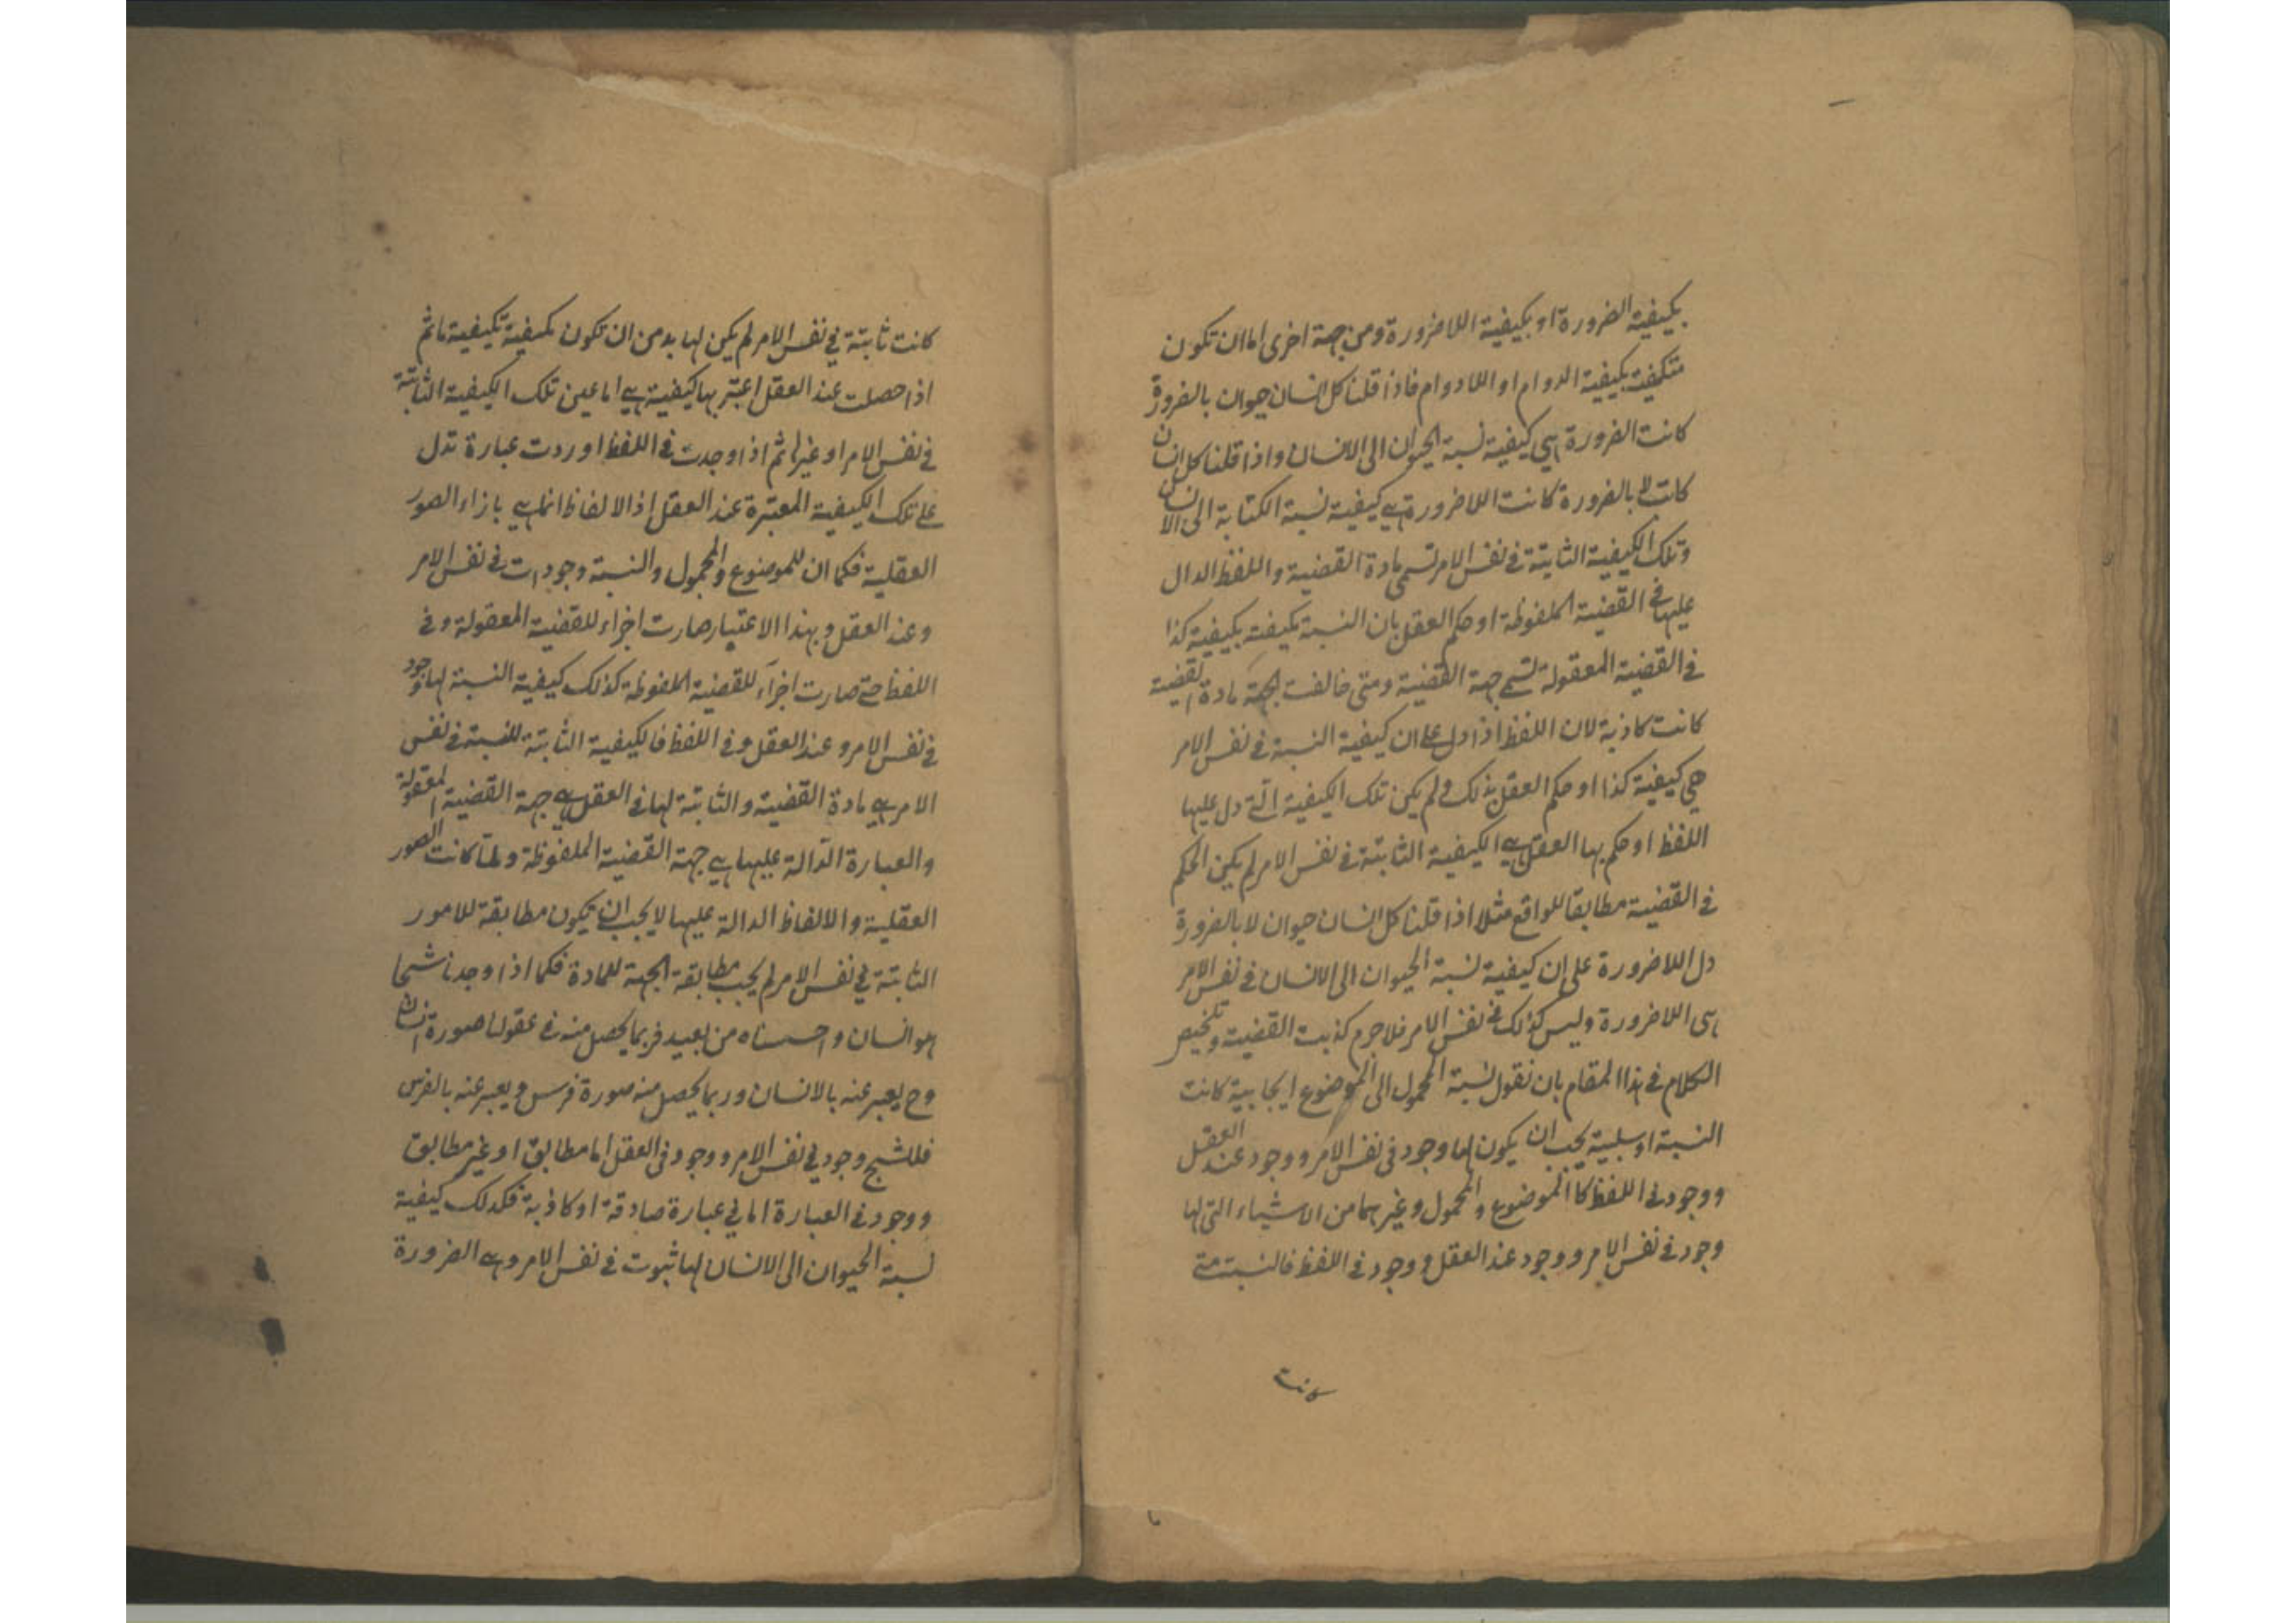 بكيفية الضرورة او بكيفية اللاضرورة ومن جهة اخرى اما ان تكون
متكيفة بكيفية الدوام او اللادوام فاذا قلنا كل انسان حيوان بالضرورة
كانت الضرورة هى كيفية نسبة الحيوان الى الانسان واذا قلنا كل انسان
كاتب لا بالضرورة كانت اللاضرورة هى كيفية نسبة الكتابة الى الانسان
وتلك الكيفية الثابتة فى نفس الامر تسمى مادة القضية واللفظ الدال
عليها فى القضية الملفوظة او حكم العقل بان النسبة تكيفت بكيفية كذا
فى القضية المعقولة تسمى جهة القضية ومتى خالفت الجهة مادة القضية
كانت كاذبة لان اللفظ اذا دل على ان كيفية النسبة فى نفس الامر
هي كيفية كذا او حكم العقل بذلك ولم يكن تلك الكيفية التى دل عليها
اللفظ او حكم بها العقل هى الكيفية الثابتة فى نفس الامر لم يكن الحكم
فى القضية مطابقا للواقع مثلا اذا قلنا كل انسان حيوان لا بالضرورة
دل اللاضرورة على ان كيفية نسبة الحيوان الى الانسان فى نفس الامر
هى اللاضرورة وليس كذلك فى نفس الامر فلا جرم كذبت القضية وتلخيص
الكلام فى هذا المقام بان نقول نسبة المحمول الى الموضوع ايجابية كانت
النسبة او سلبية يجب ان يكون لها وجود فى نفس الامر ووجود عند العقل
ووجود فى اللفظ كا الموضوع والمحمول وغيرهما من الاشياء التى لها
وجود فى نفس الامر ووجود عند العقل ووجود فى اللفظ فالنسبة متى
كانت
كانت ثابتة في نفس الامر لم يكن لها بد من ان تكون مكيفية بكيفية ما ثم
اذا حصلت عند العقل اعتبر بها كيفية هى اما عين تلك الكيفية الثابتة
فى نفس الامر او غيرها ثم اذا وجدت فى اللفظ اوردت عبارة تدل
على تلك الكيفية المعتبرة عند العقل اذ الالفاظ انما هى بازاء الصور
العقلية فكما ان للموضوع والمحمول والنسبة وجودات فى نفس الامر
وعند العقل وبهذا الاعتبار صارت اجزاء للقضية المعقولة وفى
اللفظ حتى صارت اجزآء للقضية الملفوظة كذلك كيفية النسبة لها وجود
فى نفس الامر وعند العقل وفى اللفظ فالكيفية الثابتة للنسبة فى نفس
الامر هى مادة القضية والثابتة لها فى العقل هى جهة القضية المعقولة
والعبارة الدّالة عليها هى جهة القضية الملفوظة ولما كانت الصور
العقلية والالفاظ الدالة عليها لا يجب ان يكون مطابقة للامور
الثابتة في نفس الامر لم يجب مطابقة الجهة للمادة فكما اذا وجدنا شبحا
هو انسان واحسسناه من بعيد فربما يحصل منه فى عقولنا صورة انسان
وح يعبر عنه بالانسان وربما يحصل منه صورة فرس ويعبر عنه بالفرس
فللشبح وجود في نفس الامر ووجود فى العقل اما مطابق او غير مطابق
ووجود فى العبارة اما في عبارة صادقة او كاذبة فكذلك كيفية
نسبة الحيوان الى الانسان لها ثبوت فى نفس الامر وهى الضرورة